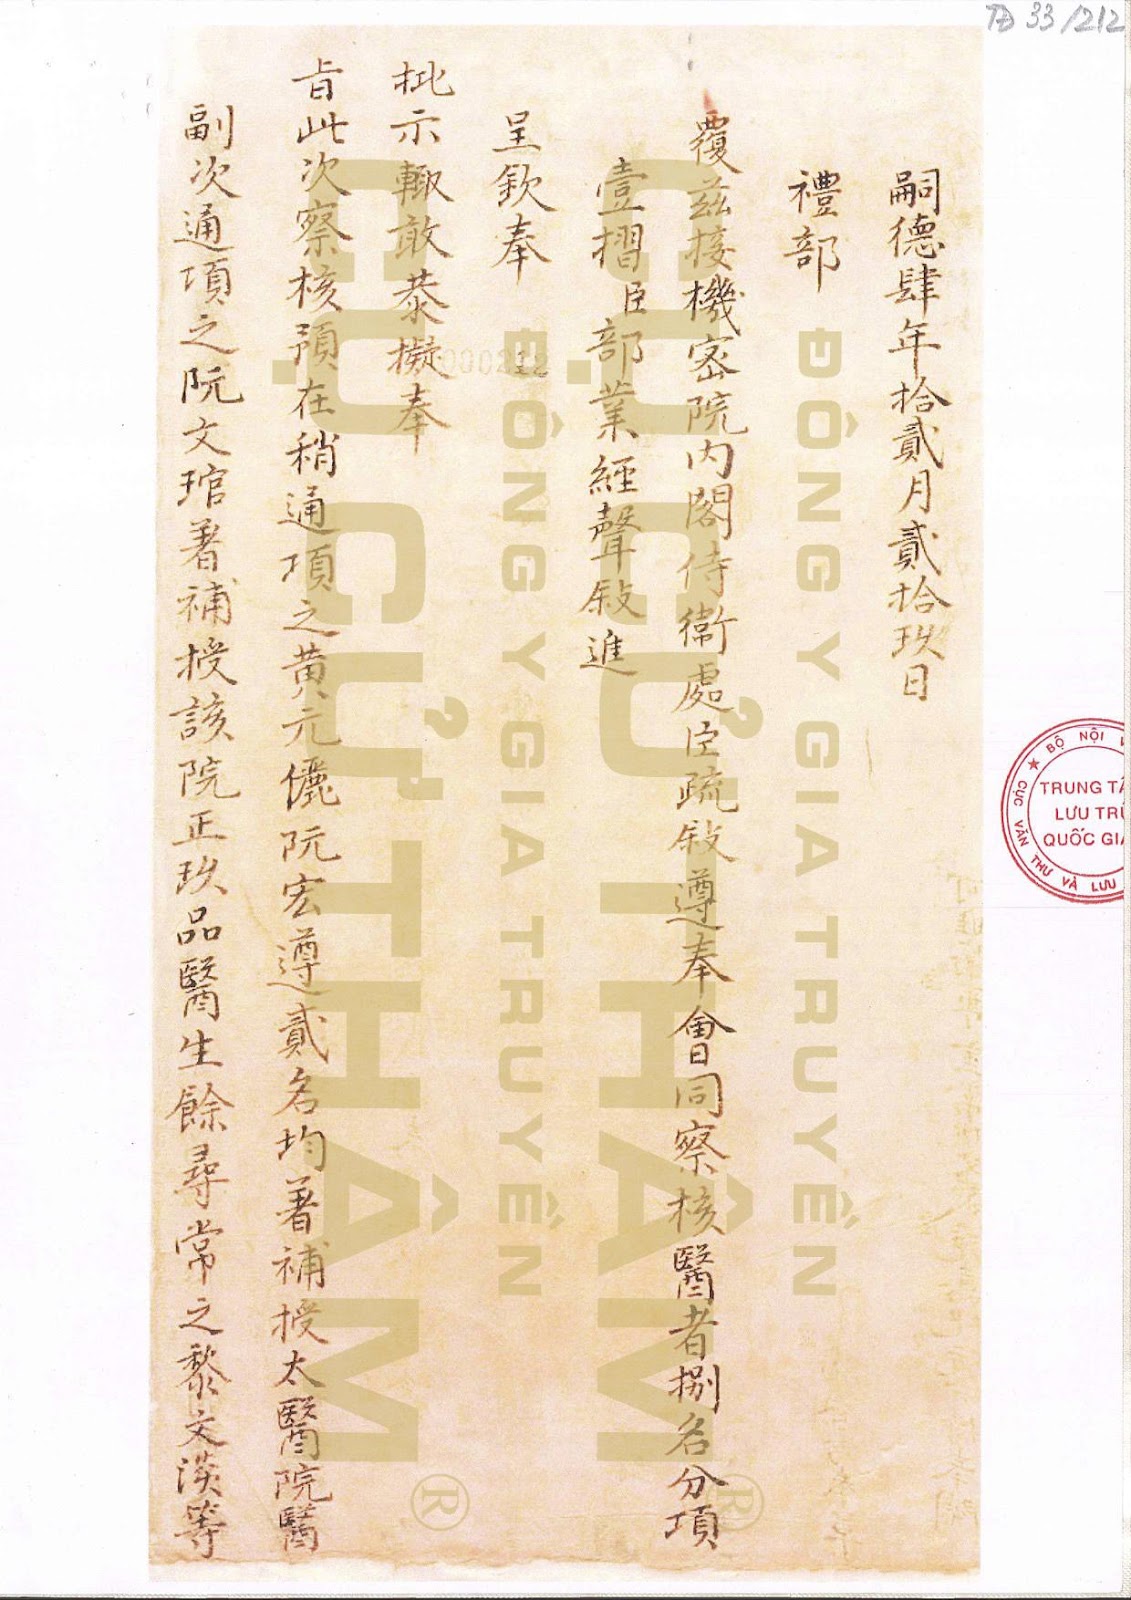 TĐ 33/212
嗣德肆年拾貳月貳拾玖日
禮部
覆茲接機密院內閣侍衛處臣疏敍遵奉會同察核醫者捌名分項
壹摺臣部業經聲敍進
呈欽奉
批示輙敢恭擬奉
旨此次察核預在稍通項之黄元儷阮宏遵貳名均著補授太醫院醫
副次通項之阮文琯著補授該院正玖品醫生餘尋常之黎文淡等
000212
CỤ CỬ THÂM
ĐÔNG Y GIA TRUYỀN
CỤ CỬ THÂM
ĐÔNG Y GIA TRUYỀN
®
®
★ BỘ NỘI
CỤC VĂN THƯ VÀ LƯU
TRUNG TÂ
LƯU TRỮ
QUỐC GIA